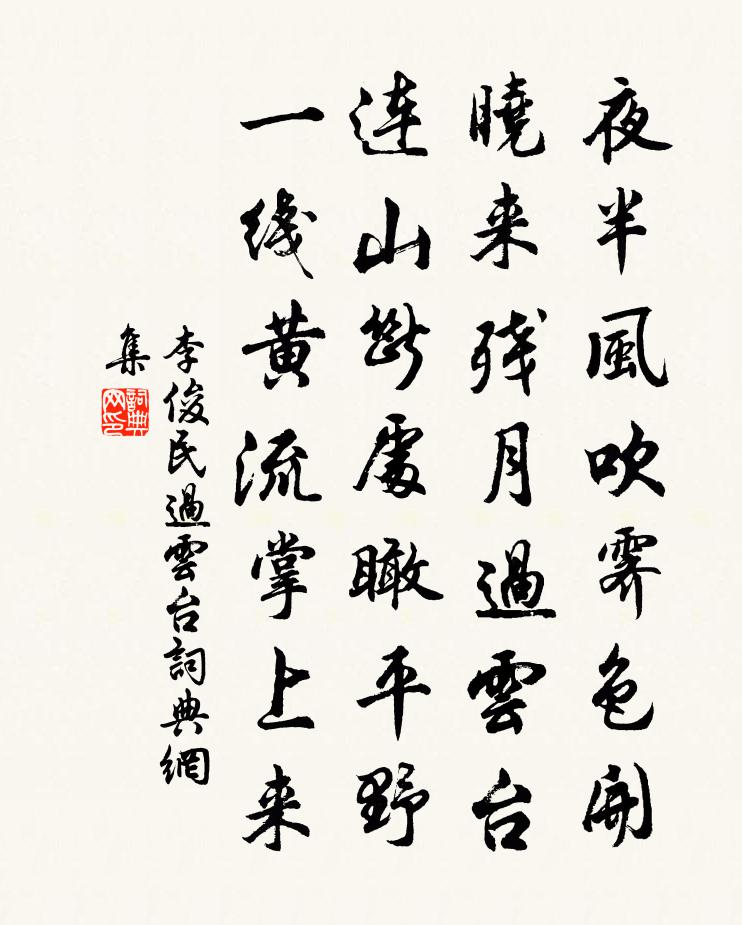 夜半風吹霽色開
曉来残月過雲台
連山斷處瞰平野
一线黄流掌上来
李俊民過雲台詞典網
集
詞典
网印